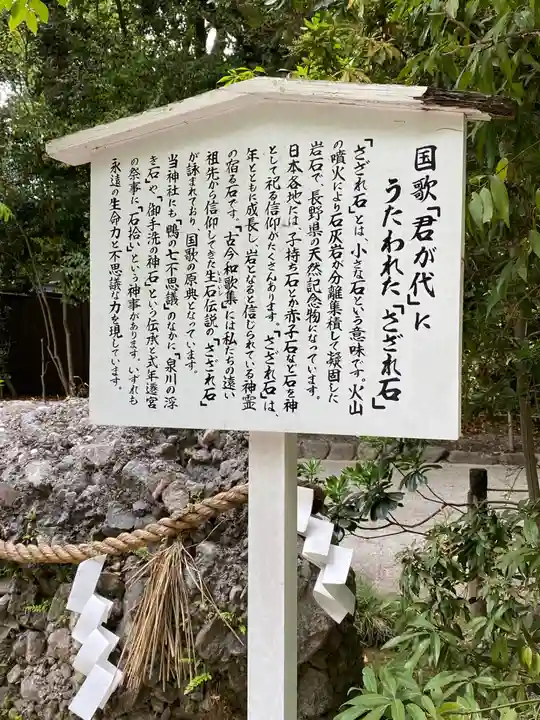 国歌「君が代」に
うたわれた「さざれ石」
「さざれ石」とは、小さな石という意味です。火山
の噴火により石灰岩が分離集積して凝固した
岩石で、長野県の天然記念物になっています。
日本各地には、子持ち石とか赤子石など石を神
として祀る信仰がたくさんあります。「さざれ石」は、
年とともに成長し、岩となると信じられている神霊
の宿る石です。「古今和歌集」には私たちの遠い
祖先から信仰してきた生石伝説の「さざれ石」
が詠まれており、国歌の原典となっています。
当神社にも、「鴨の七不思議」のなかに、「泉川の浮
き石」や、「御手洗の神石」という伝承と式年遷宮
の祭事に、「石拾」という神事があります。いずれも
永遠の生命力と不思議な力を現しています。